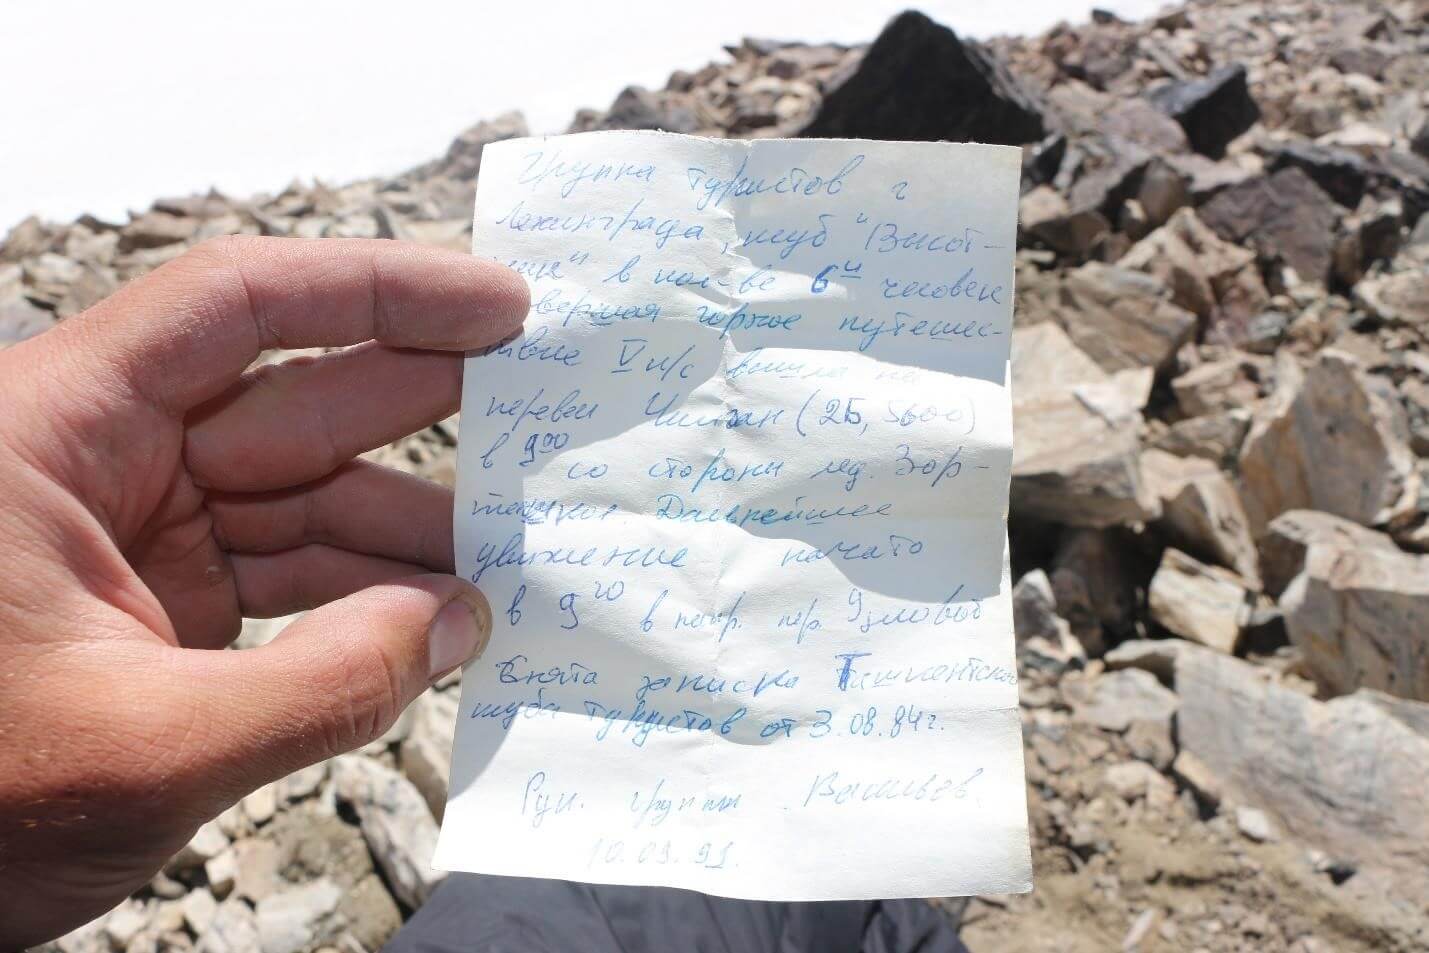 Группа туристов г
Ленинграда, клуб "Высот-
ник" в кол-ве 6и человек
совершая горное путешес-
твие V к/с вышла на
перевал Чимган (2Б, 5600)
в 9 00 со стороны лед. Зор-
ташкол. Дальнейшее
движение начато
в 9 20 в напр. пер. Узловой
Снята записка Ташкентского
клуба туристов от 3.08.84г.
Рук. группы Васильев.